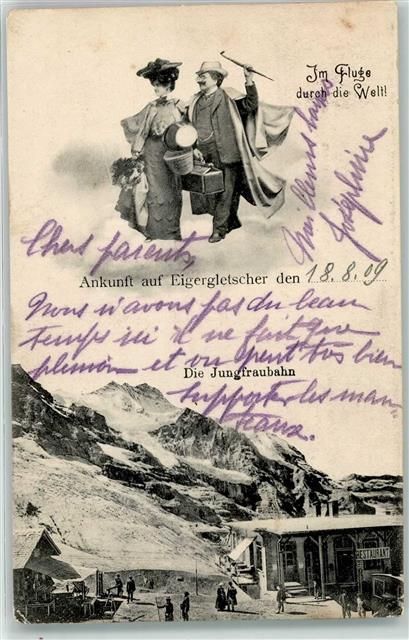 Im Fluge
durch die Welt!
Chers parents,
Joséphine
Ankunft auf Eigergletscher den 18.8.09
Nous n'avons pas du beau
temps ici il ne fait que
pleuvoir et on peut très bien
Die Jungfraubahn
supporter les man-
teaux.
RESTAURANT